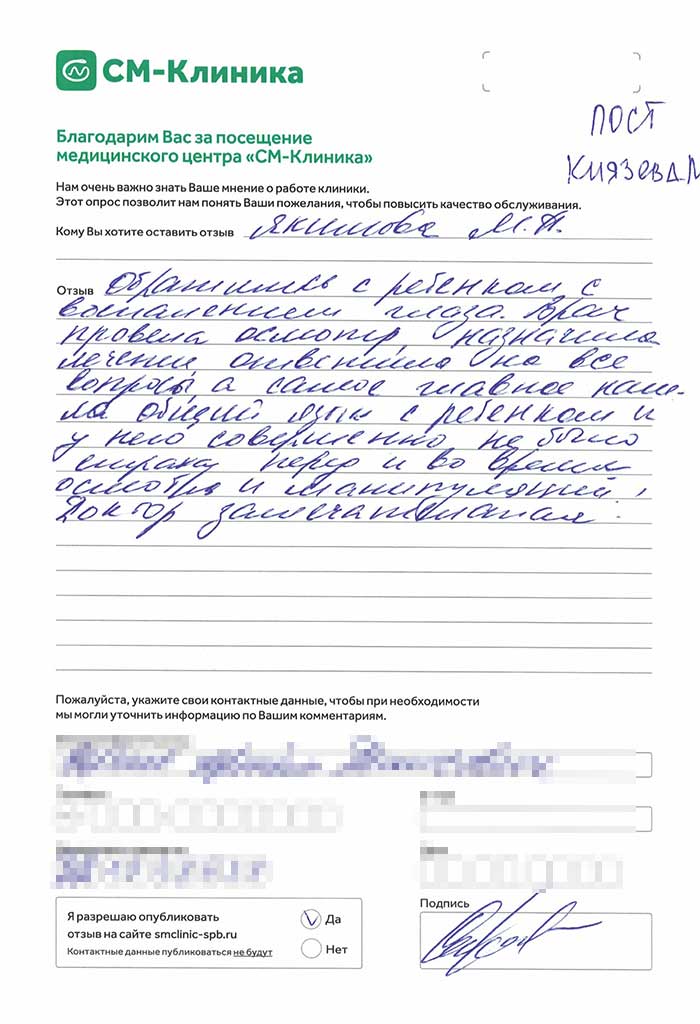 СМ-Клиника
Благодарим Вас за посещение
медицинского центра «СМ-Клиника»
ПОСТ
КНЯЗЕВ Д.М
Нам очень важно знать Ваше мнение о работе клиники.
Этот опрос позволит нам понять Ваши пожелания, чтобы повысить качество обслуживания.
Кому Вы хотите оставить отзыв Якимова М.А.
Отзыв Обратились с ребенком с
воспалением глаза. Врач
провела осмотр назначила
лечение ответила на все
вопросы, а самое главное наш-
ла общий язык с ребенком и
у него совершенно не было
страху перед и во время
осмотра и манипуляций!
Доктор замечательная!
Пожалуйста, укажите свои контактные данные, чтобы при необходимости
мы могли уточнить информацию по Вашим комментариям.
Я разрешаю опубликовать
отзыв на сайте smclinic-spb.ru
Контактные данные публиковаться не будут
Да
Нет
Подпись